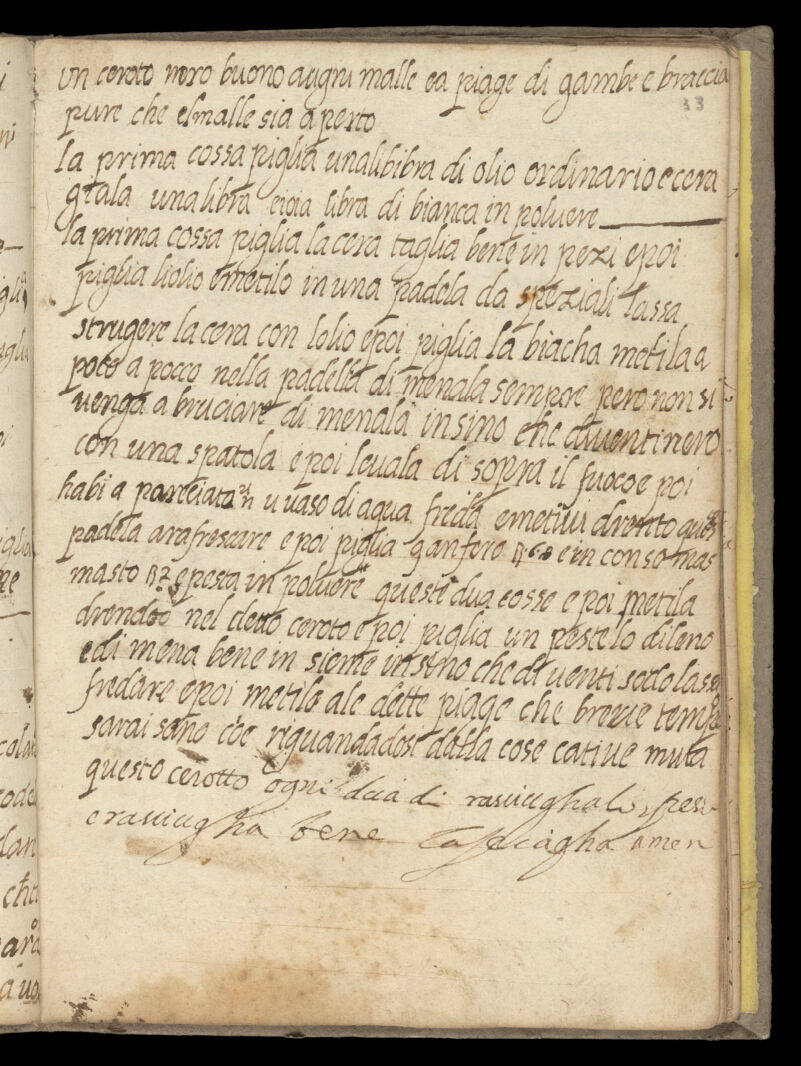 un ceroto nero buono augni malle ea piage di gambe e braccia
33
pure che elmalle sia aperto
la prima cossa piglia unalibibra di olio ordinario e cera
giala una libra libra di bianca in polvere
la prima cossa piglia la cera taglia bene in pezi epoi
piglia liolio emetilo in una padela da speziali lassa
strugere la cera con lolio epoi piglia la biacha metila a
poco a pocco nella padella di menala sempre pero non si
venga a bruciare di menala insino che diventi nero
con una spatola epoi levala di sopra il fuoco e poi
habi a pareciato u vaso di aqua freda emetivi drento
padela arafrescare epoi piglia ganfora e in conso mas
masto epesta in polvere queste dua cosse e poi metila
drendo nel detto ceroto e poi piglia un pestelo di leno
edi mena bene in sieme insino che di venti sodo lassa
fredare epoi metilo ale dette piage che breve tempo
sarai sano che riguandadosi dalla cose cative muta
questo cerotto ogni dua di
e bene la piagha amen